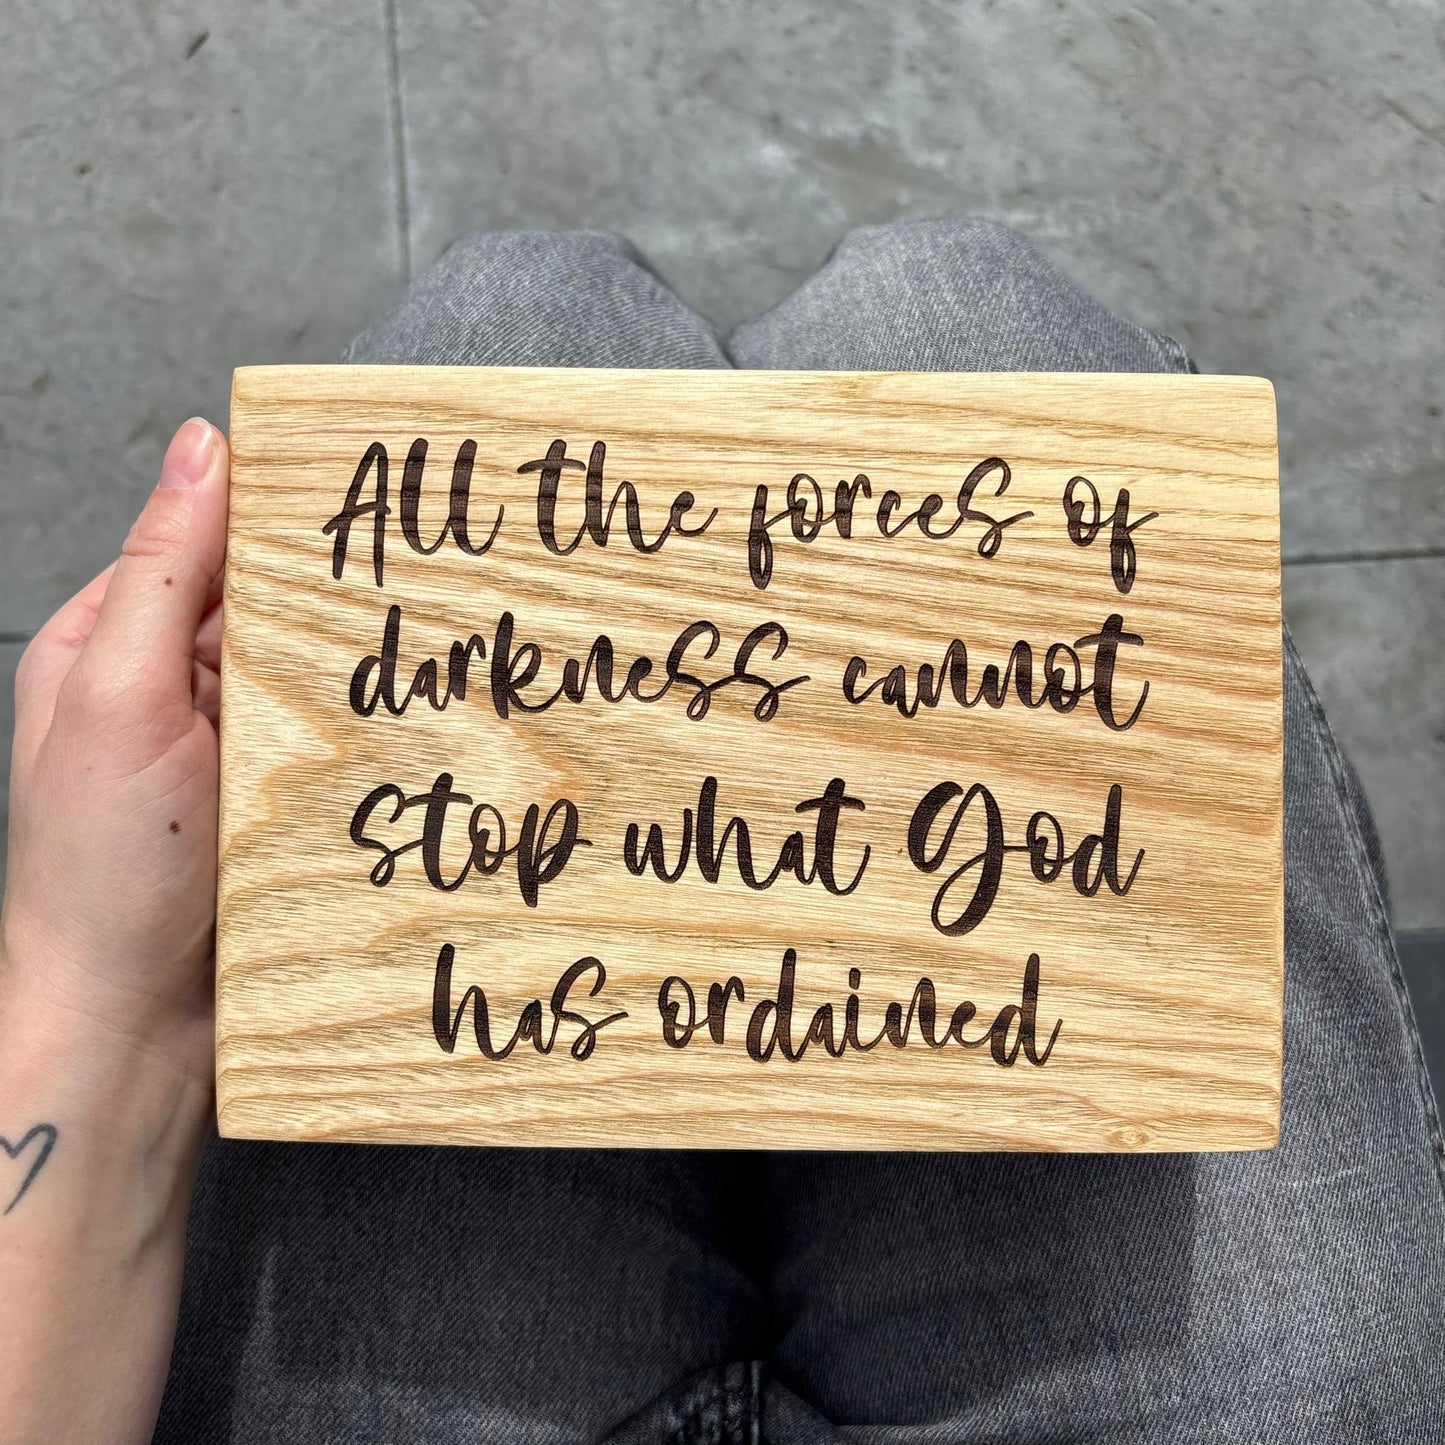 All the forces of
darkness cannot
stop what God
has ordained